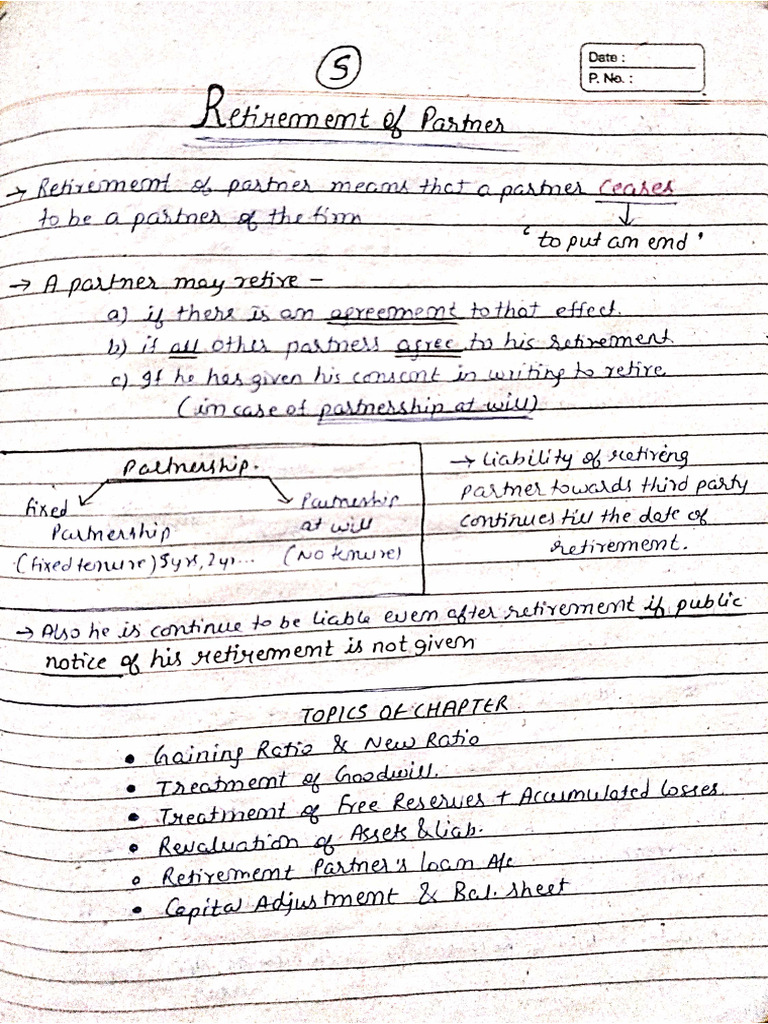 5
Date :
P. No. :
Retirement of Partner
→ Retirement of partner means that a partner ceases
to be a partner of the firm
' to put an end '
→ A partner may retire –
a) if there is an agreement to that effect.
b) if all other partners agree to his retirement
c) If he has given his consent in writing to retire
(in case of partnership at will)
Partnership.
fixed
Partnership
(fixed tenure) 5yrs, 2yr...
Partneship
at will
(No tenure)
→ Liability of retireng
partner towards third party
continues till the date of
retirement.
→ Also he is continue to be liable even after retirement if public
notice of his retirement is not given
TOPICS OF CHAPTER
• Gaining Ratio & New Ratio
• Treatment of Goodwill.
• Treatment of Free Reserves + Accumulated losses
• Revaluation of Assets & Liab.
• Retirement Partner's loan A/c
• Capital Adjustment & Bal. sheet